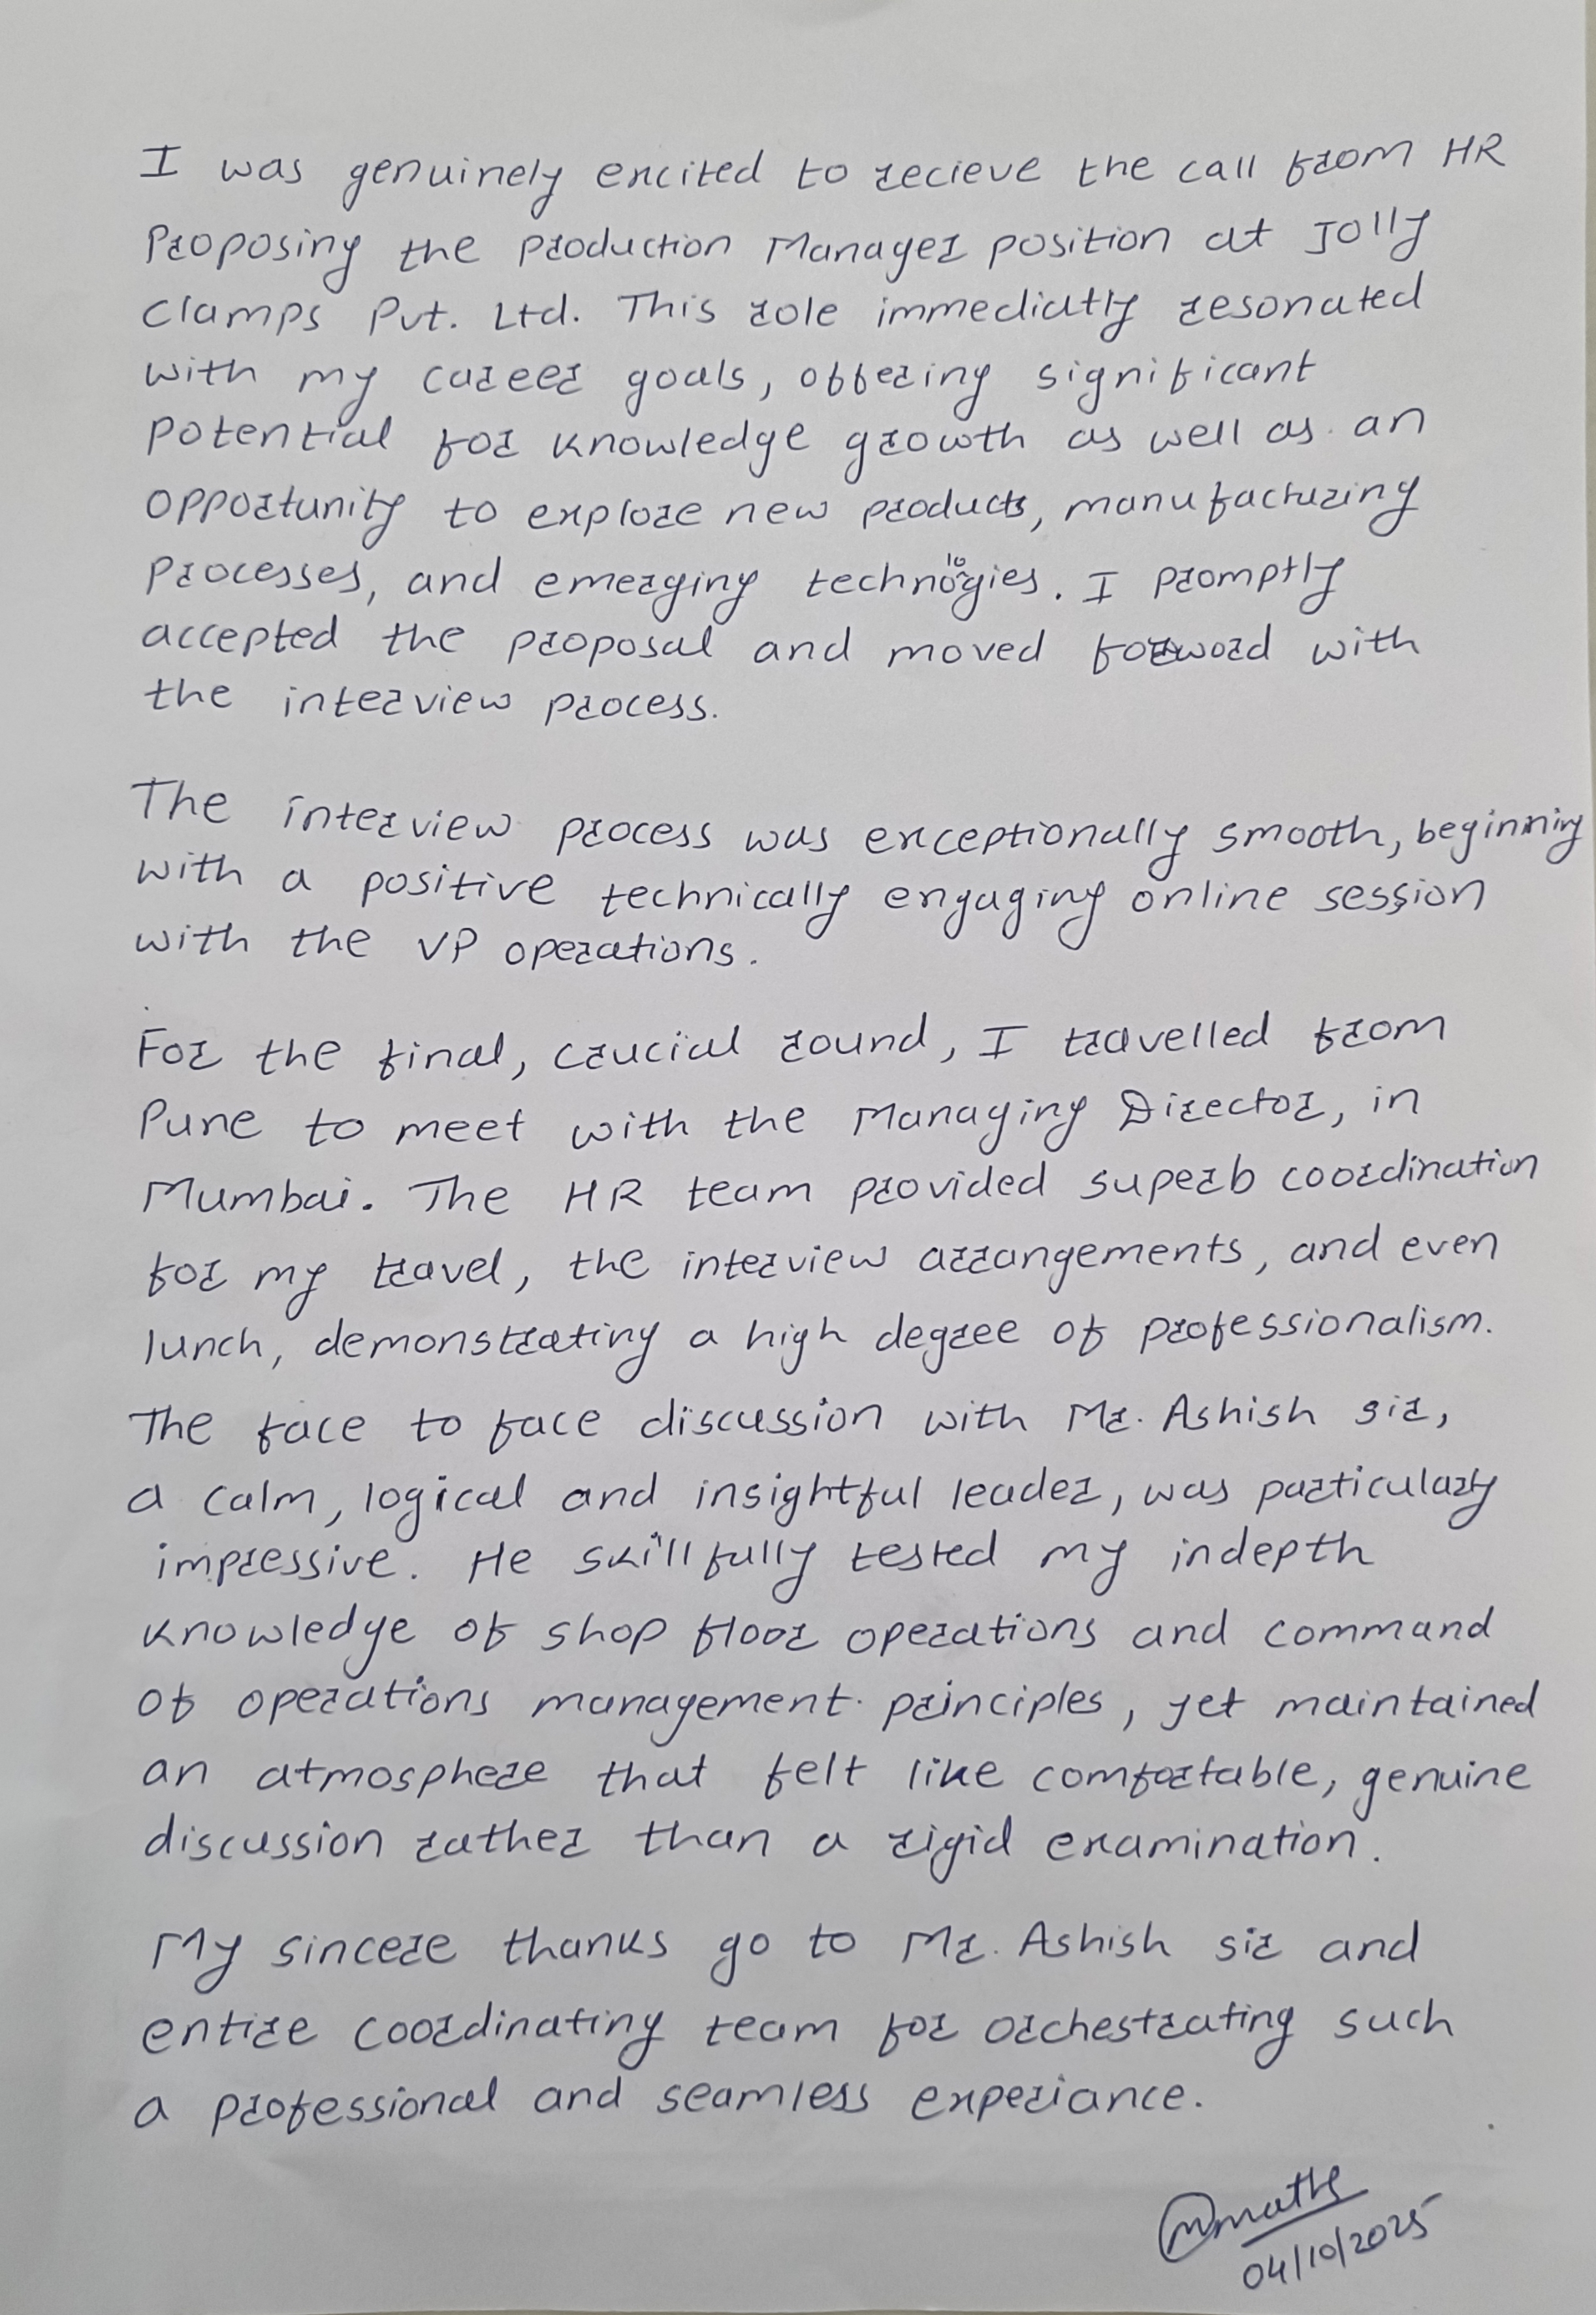 I was genuinely excited to recieve the call from HR
Proposing the Production Manager position at Jolly
Clamps Pvt. Ltd. This role immediatly resonated
with my career goals, offering significant
potential for knowledge growth as well as an
opportunity to explore new products, manufacturing
processes, and emerging technologies. I promptly
accepted the proposal and moved forword with
the interview process.
The interview process was exceptionally smooth, beginning
with a positive technically engaging online session
with the VP operations.
For the final, crucial round, I travelled from
Pune to meet with the Managing Director, in
Mumbai. The HR team provided superb coordination
for my travel, the interview arrangements, and even
lunch, demonstrating a high degree of professionalism.
The face to face discussion with Mr. Ashish sir,
a calm, logical and insightful leader, was particularly
impressive. He skillfully tested my indepth
knowledge of shop floor operations and command
of operations management principles, yet maintained
an atmosphere that felt like comfortable, genuine
discussion rather than a rigid examination.
My sincere thanks go to Mr. Ashish sir and
entire coordinating team for orchestrating such
a professional and seamless experiance.
04/10/2025